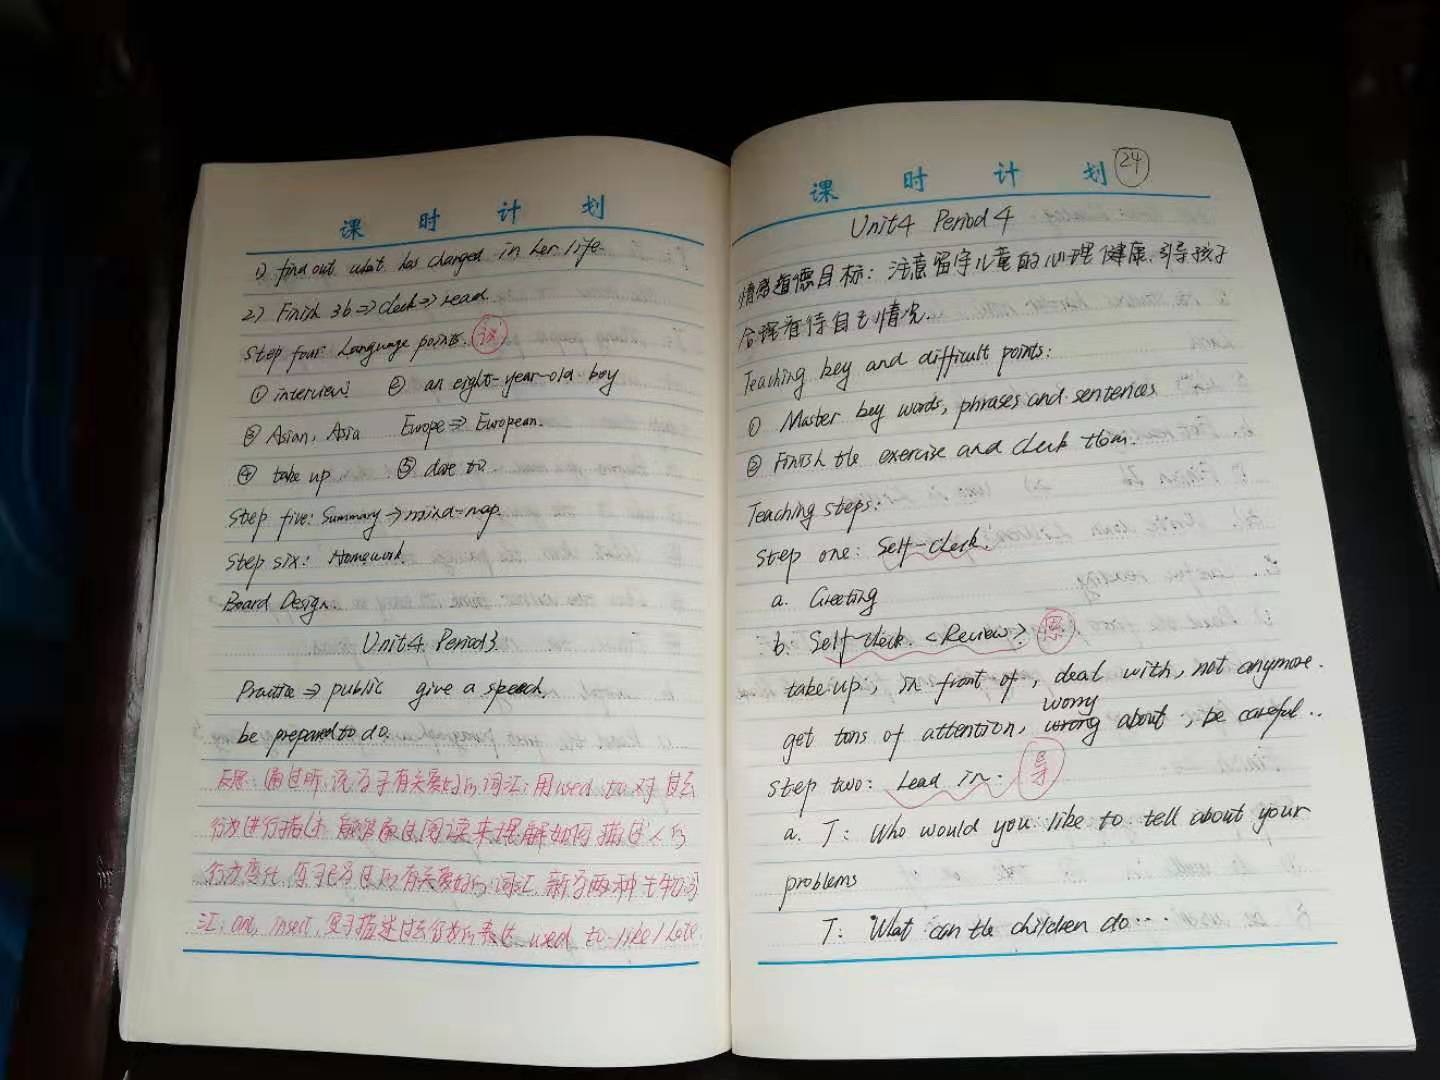 课 时 计 划
1) find out what has changed in her life.
2) Finish 3b⇒check⇒read.
Step four Language points. 议
① interview ② an eight-year-old boy
③ Asian, Asia Europe⇒European.
④ take up ⑤ dare to
Step five: Summary→mind-map.
Step six: Homework.
Board Design
Unit4 Period3.
Practice ⇒ public give a speech.
be prepared to do.
反思: 通过听,说学习有关爱好的词汇;用used to对自己
行为进行描述 能够通过阅读来理解如何描述人的
行为变化, 复习已学过的有关爱好的词汇, 新学两种生物词
汇: ant, insect, 复习描述过去行为的表达 used to-like / hate.
课 时 计 划 24
Unit4 Period 4
情感道德目标: 注意留守儿童的心理健康.引导孩子
合理看待自己情况.
Teaching key and difficult points:
① Master key words, phrases and sentences
② Finish the exercise and check them.
Teaching steps:
Step one: Self-check.
a. Greeting
b. Self-check. <Review>
take up, in front of, deal with, not anymore.
get tons of attention, wrong worry about, be careful..
Step two: Lead in. 导
a. T: Who would you like to tell about your
problems
T: What can the children do...